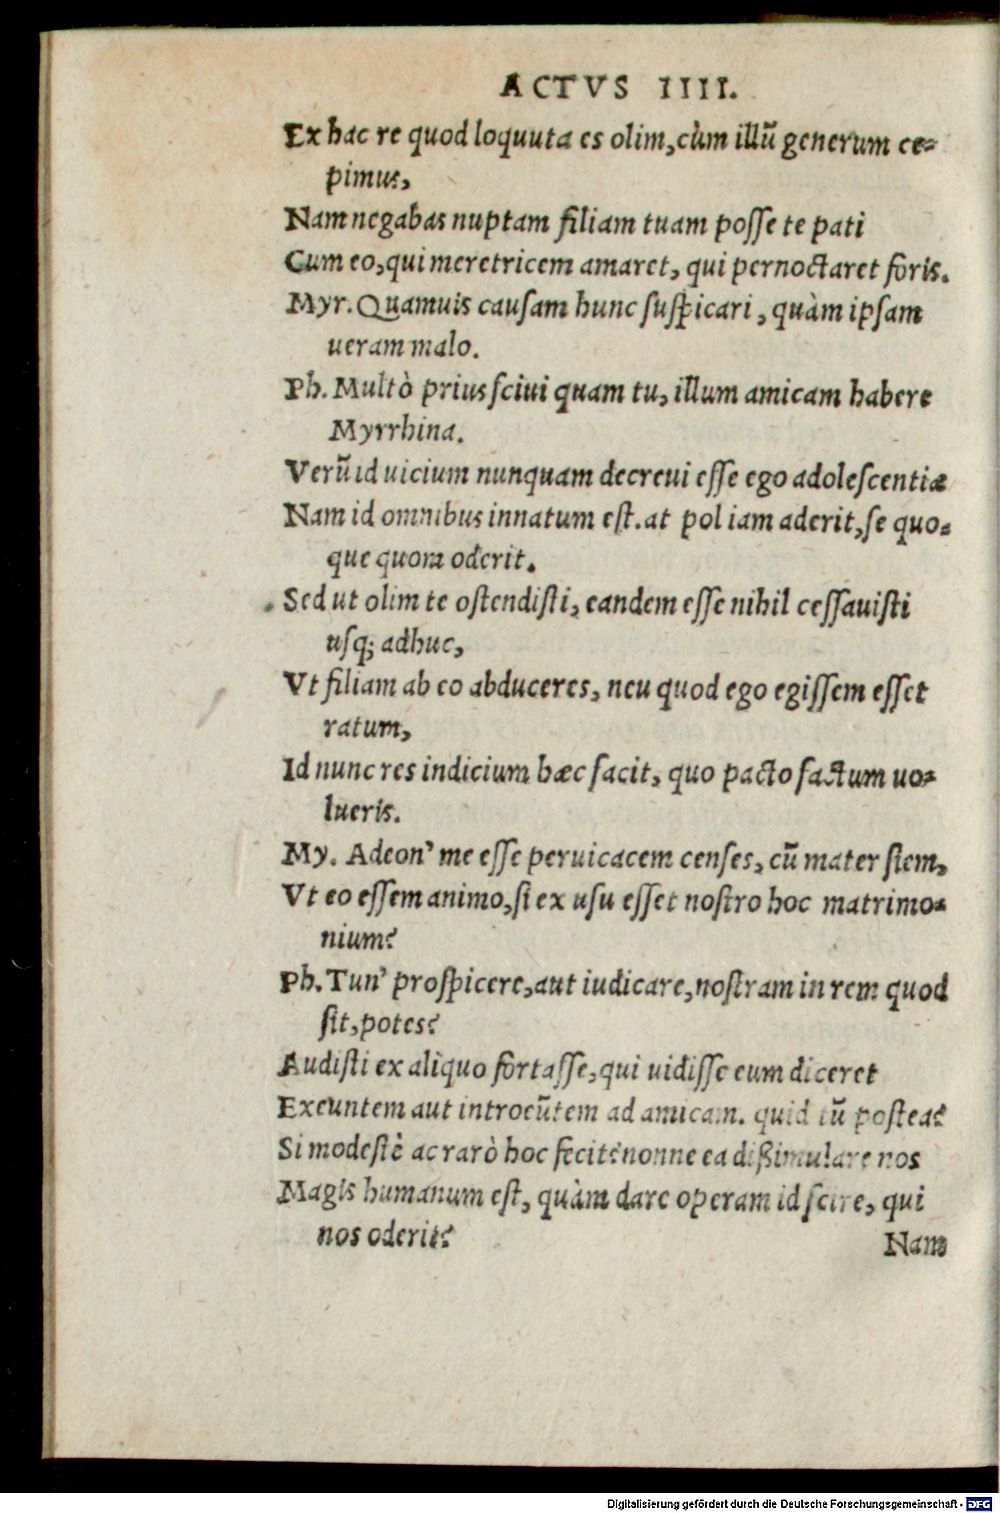 ACTVS IIII.
Ex hac re quod loquuta es olim, cùm illũ generum ce-
pimus,
Nam negabas nuptam filiam tuam posse te pati
Cum eo, qui meretricem amaret, qui pernoctaret foris.
Myr. Quamuis causam hunc suspicari, quàm ipsam
ueram malo.
Ph. Multò prius sciui quam tu, illum amicam habere
Myrrhina.
Verũ id uicium nunquam decreui esse ego adolescentiæ
Nam id omnibus innatum est. at pol iam aderit, se quo-
que quom oderit.
Sed ut olim te ostendisti, eandem esse nihil cessauisti
usq; adhuc,
Vt filiam ab eo abduceres, neu quod ego egissem esset
ratum,
Id nunc res indicium hæc facit, quo pacto factum uo-
lueris.
My. Adeon' me esse peruicacem censes, cũ mater siem,
Vt eo essem animo, si ex usu esset nostro hoc matrimo-
nium?
Ph. Tun' prospicere, aut iudicare, nostram in rem quod
sit, potes?
Audisti ex aliquo fortasse, qui uidisse eum diceret
Exeuntem aut introeũtem ad amicam. quid tũ postea?
Si modestè ac rarò hoc fecit? nonne ea dißimulare nos
Magis humanum est, quàm dare operam id scire, qui
nos oderit?
Nam
Digitalisierung gefördert durch die Deutsche Forschungsgemeinschaft - DFG